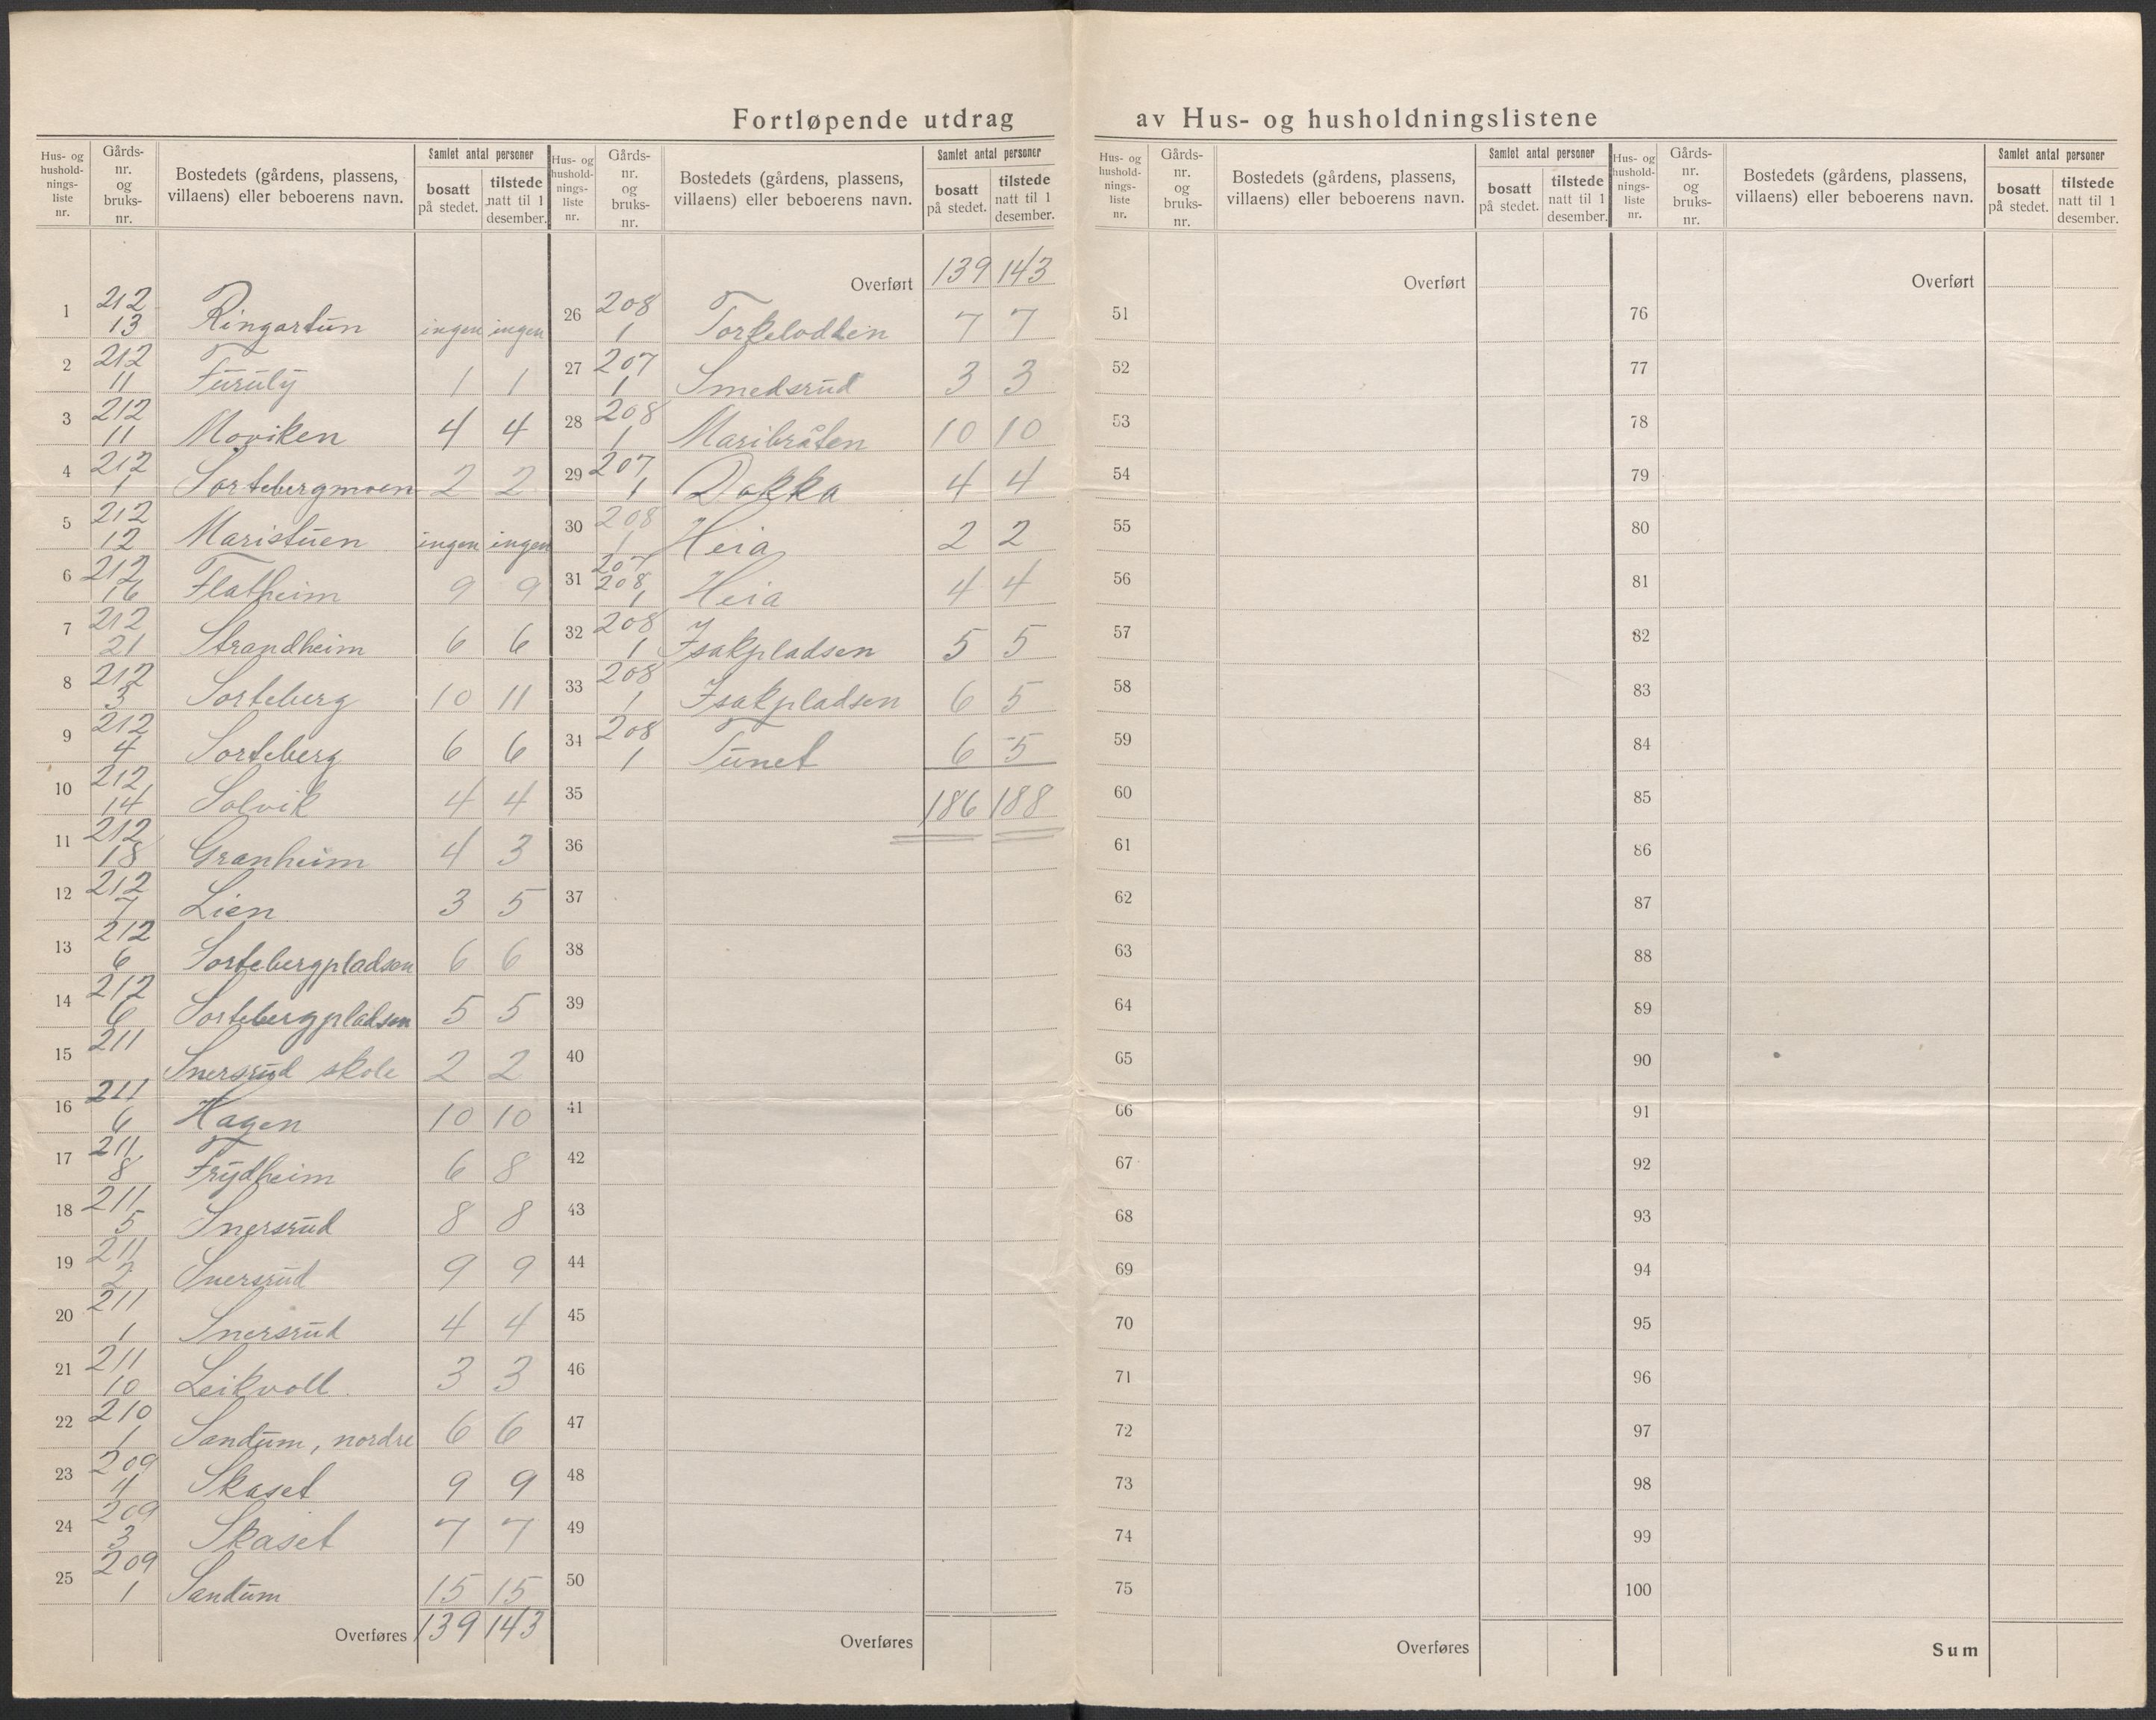 Fortløpende utdrag av Hus- og husholdningslistene
Hus- og hushold-nings-liste nr. | Gårds-nr. og bruks-nr. | Bostedets (gårdens, plassens, villaens) eller beboerens navn. | Samlet antal personer | bosatt på stedet. | tilstede natt til 1 desember.
1 | 212 13 | Ringartun | ingen | ingen
2 | 212 11 | Furuly | 1 | 1
3 | 212 11 | Moviken | 4 | 4
4 | 212 1 | Sortebergmoen | 2 | 2
5 | 212 12 | Maristuen | ingen | ingen
6 | 212 16 | Flatheim | 9 | 9
7 | 212 21 | Strandheim | 6 | 6
8 | 212 3 | Sorteberg | 10 | 11
9 | 212 4 | Sorteberg | 6 | 6
10 | 212 14 | Solvik | 4 | 4
11 | 212 18 | Granheim | 4 | 3
12 | 212 7 | Lien | 3 | 5
13 | 212 6 | Sortebergpladsen | 6 | 6
14 | 212 6 | Sortebergpladsen | 5 | 5
15 | 211 | Snersrud skole | 2 | 2
16 | 211 6 | Hagen | 10 | 10
17 | 211 8 | Frydheim | 6 | 8
18 | 211 5 | Snersrud | 8 | 8
19 | 211 2 | Snersrud | 9 | 9
20 | 211 1 | Snersrud | 4 | 4
21 | 211 10 | Leikvoll | 3 | 3
22 | 210 1 | Sandum, nordre | 6 | 6
23 | 209 4 | Skaset | 9 | 9
24 | 209 3 | Skaset | 7 | 7
25 | 209 1 | Sandum | 15 | 15
Overføres | 139 | 143
Hus- og hushold-nings-liste nr. | Gårds-nr. og bruks-nr. | Bostedets (gårdens, plassens, villaens) eller beboerens navn. | Samlet antal personer | bosatt på stedet. | tilstede natt til 1 desember.
Overført | 139 | 143
26 | 208 1 | Torkelodden | 7 | 7
27 | 207 1 | Smedsrud | 3 | 3
28 | 208 1 | Maribråten | 10 | 10
29 | 207 1 | Dokka | 4 | 4
30 | 208 1 | Heia | 2 | 2
31 | 207 208 1 | Heia | 4 | 4
32 | 208 1 | Isakpladsen | 5 | 5
33 | 208 1 | Isakpladsen | 6 | 5
34 | 208 1 | Tunet | 6 | 5
35 | 186 | 188
36
37
38
39
40
41
42
43
44
45
46
47
48
49
50
Overføres
Hus- og hushold-nings-liste nr. | Gårds-nr. og bruks-nr. | Bostedets (gårdens, plassens, villaens) eller beboerens navn. | Samlet antal personer | bosatt på stedet. | tilstede natt til 1 desember.
Overført
51
52
53
54
55
56
57
58
59
60
61
62
63
64
65
66
67
68
69
70
71
72
73
74
75
Overføres
Hus- og hushold-nings-liste nr. | Gårds-nr. og bruks-nr. | Bostedets (gårdens, plassens, villaens) eller beboerens navn. | Samlet antal personer | bosatt på stedet. | tilstede natt til 1 desember.
Overført
76
77
78
79
80
81
82
83
84
85
86
87
88
89
90
91
92
93
94
95
96
97
98
99
100
Sum